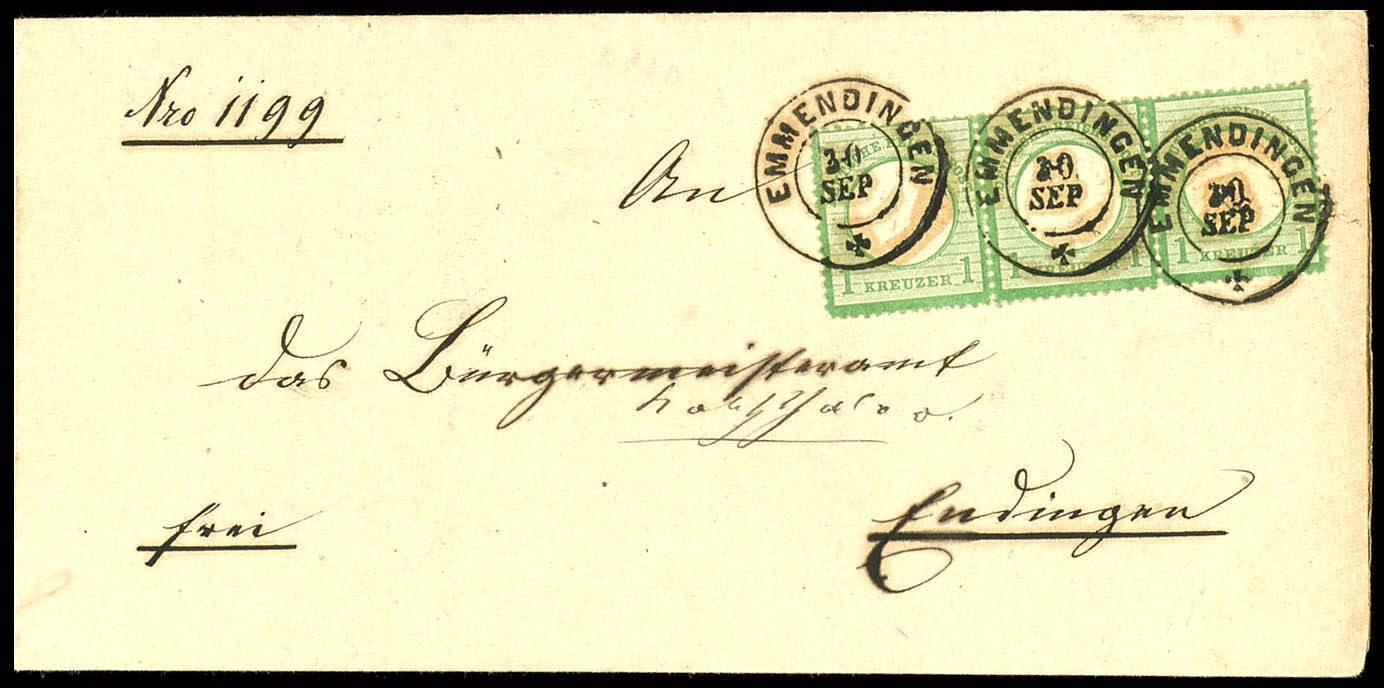 Nro 1199
EMMENDINGEN
30
SEP
EMMENDINGEN
30
SEP
EMMENDINGEN
30
SEP
1 KREUZER 1
1 KREUZER 1
1 KREUZER 1
An
das Bürgermeisteramt
Endingen
frei